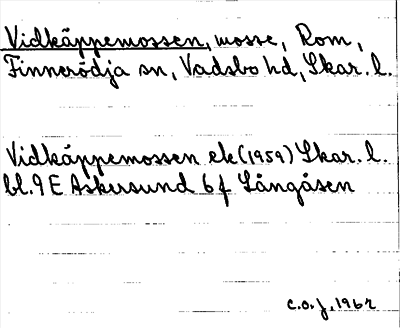 Vidkäppemossen, mosse, Rom,
Finnerödja sn, Vadsbo hd, Skar. l.
Vidkäppemossen ek (1959) Skar. l.
bl. 9 E Askersund 6 f Långåsen
C.O.J. 1962